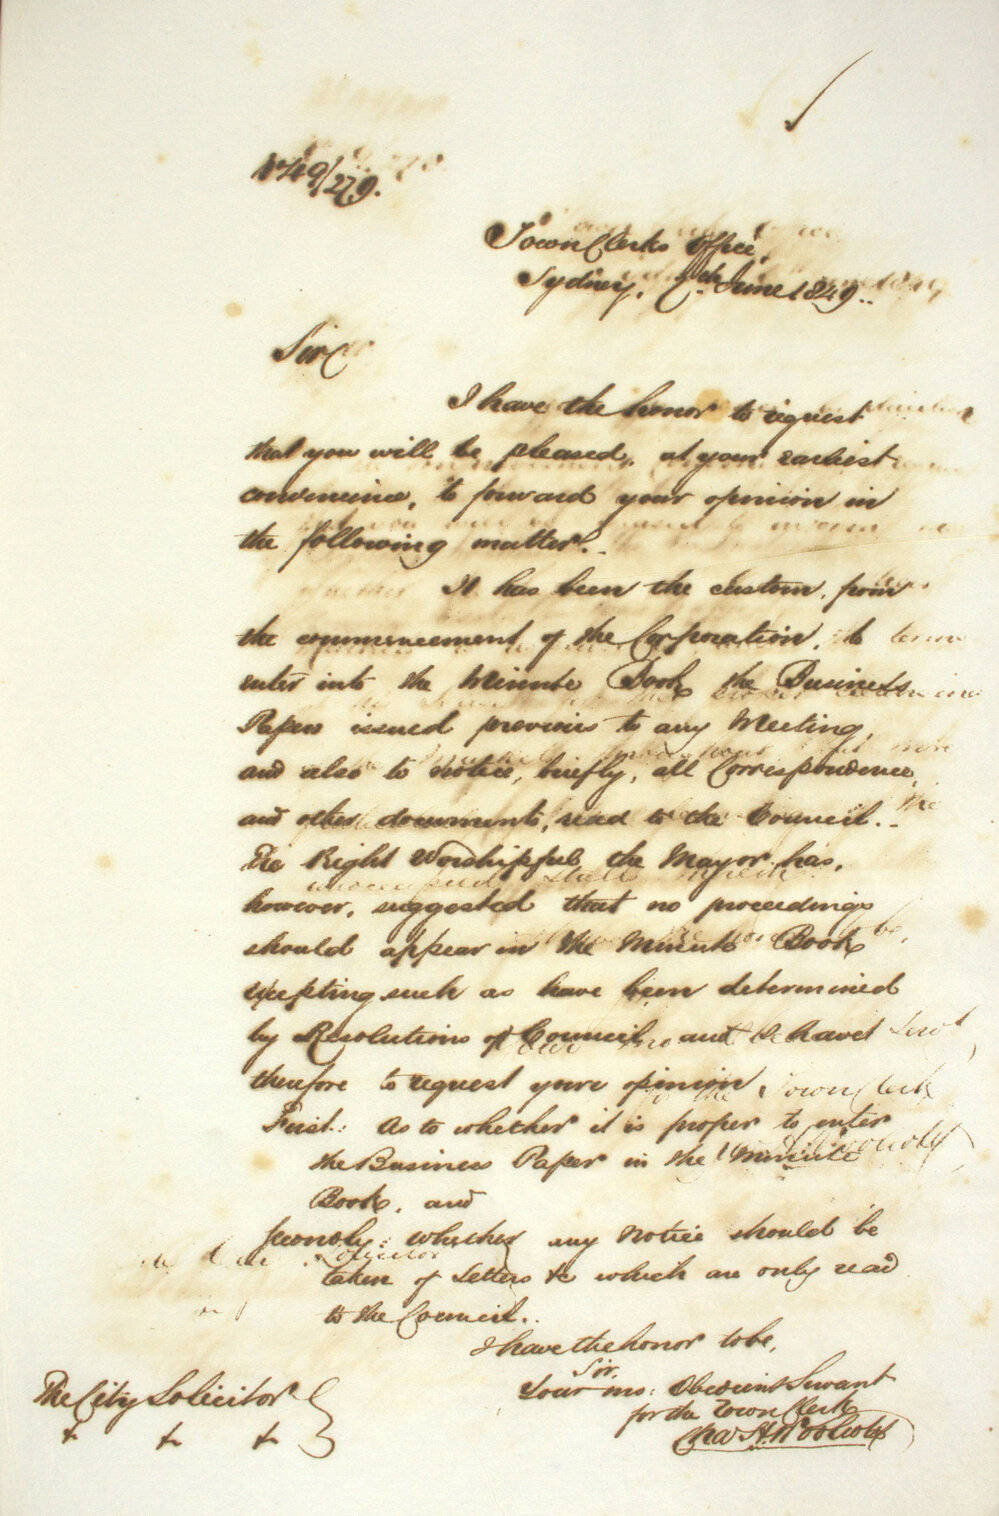 No 49/279.
Town Clerks Office,
Sydney, 7th June 1849..
Sir
I have the honor to request
that you will be pleased, at your earliest
convenience, to forward your opinion in
the following matter.
It has been the custom, from
the commencement of the Corporation, to
enter into the Minute Book the Business
Papers issued previous to any Meeting,
and also to notice, briefly, all Correspondence,
and other documents, read to the Council..
The Right Worshipful the Mayor has,
however, suggested that no proceedings
should appear in the Minute Book
excepting such as have been determined
by Resolutions of Council, and I have
therefore to request your opinion
First: As to whether it is proper to enter
the Business Paper in the Minute
Book, and
Secondly: whether any notice should be
taken of Letters &c which are only read
to the Council..
I have the honor to be,
Sir,
Your mo: Obedient Servant
for the Town Clerk
Chas H. Woolcott
The City Solicitor